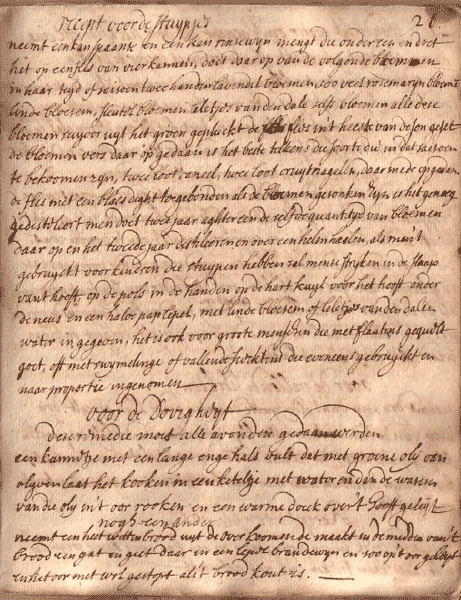 recept voor de stuypjes 26.
neemt een kan spaanse en een kan rinsewyn mengt die onder een en set
het op een fles van vier kannen, doet daar op van de volgende bloemen
in haar tyd of saisoen twee handen lavendel bloemen soo veel rosemaryn bloeme
linde bloesem, sleutel bloemen leletjes van den dale bloemen alle dese
bloemen suyver uyt het groen gepluckt de fles in't heetste van de son geset
de bloemen vers daar op gedaan is het beste telkens die soorte die in dat saisoen
te bekoomen zyn, twee loot caneel, twee loot cruytnagelen, daar mede
de fles met een blaes digt toegebonden als de bloemen gesonken zyn is het genoeg
gedistileert men doet twee jaar agter een de selfde quantityt van bloemen
daar op en het tweede jaar distileeren en over een helm haelen, als men't
gebruyckt voor kindren die stuypen hebben sal men't stryken in de slaap
van't hooft, op de pols in de handen op de hart kuyl voor het hooft onder
de neus en een halve pap lepel, met linde bloesem of leletjes van den dalen
water in gegeven, het is ook voor groote menschen die met flautens gequelt
met swymelinge of vallende siektens die eveneens gebruyckt en
naar proportie ingenomen
voor de Dovigheyt
Dese remedie moet alle avonden gedaan werden
een kannetje met een lange enge hals vult dat met groene oly van
olyven laat het kooken in een keteltje met water en dan de wasem
van die oly in't oor rooken en een warme doeck over't hooft geleyt
nogh een ander
neemt een heet witten brood uyt de oven koomende maakt in de midden van't
brood een gat en giet daar in een lepel brandewyn en soo op't oor geleyt
en het oor met wol gestopt als't brood kout is.